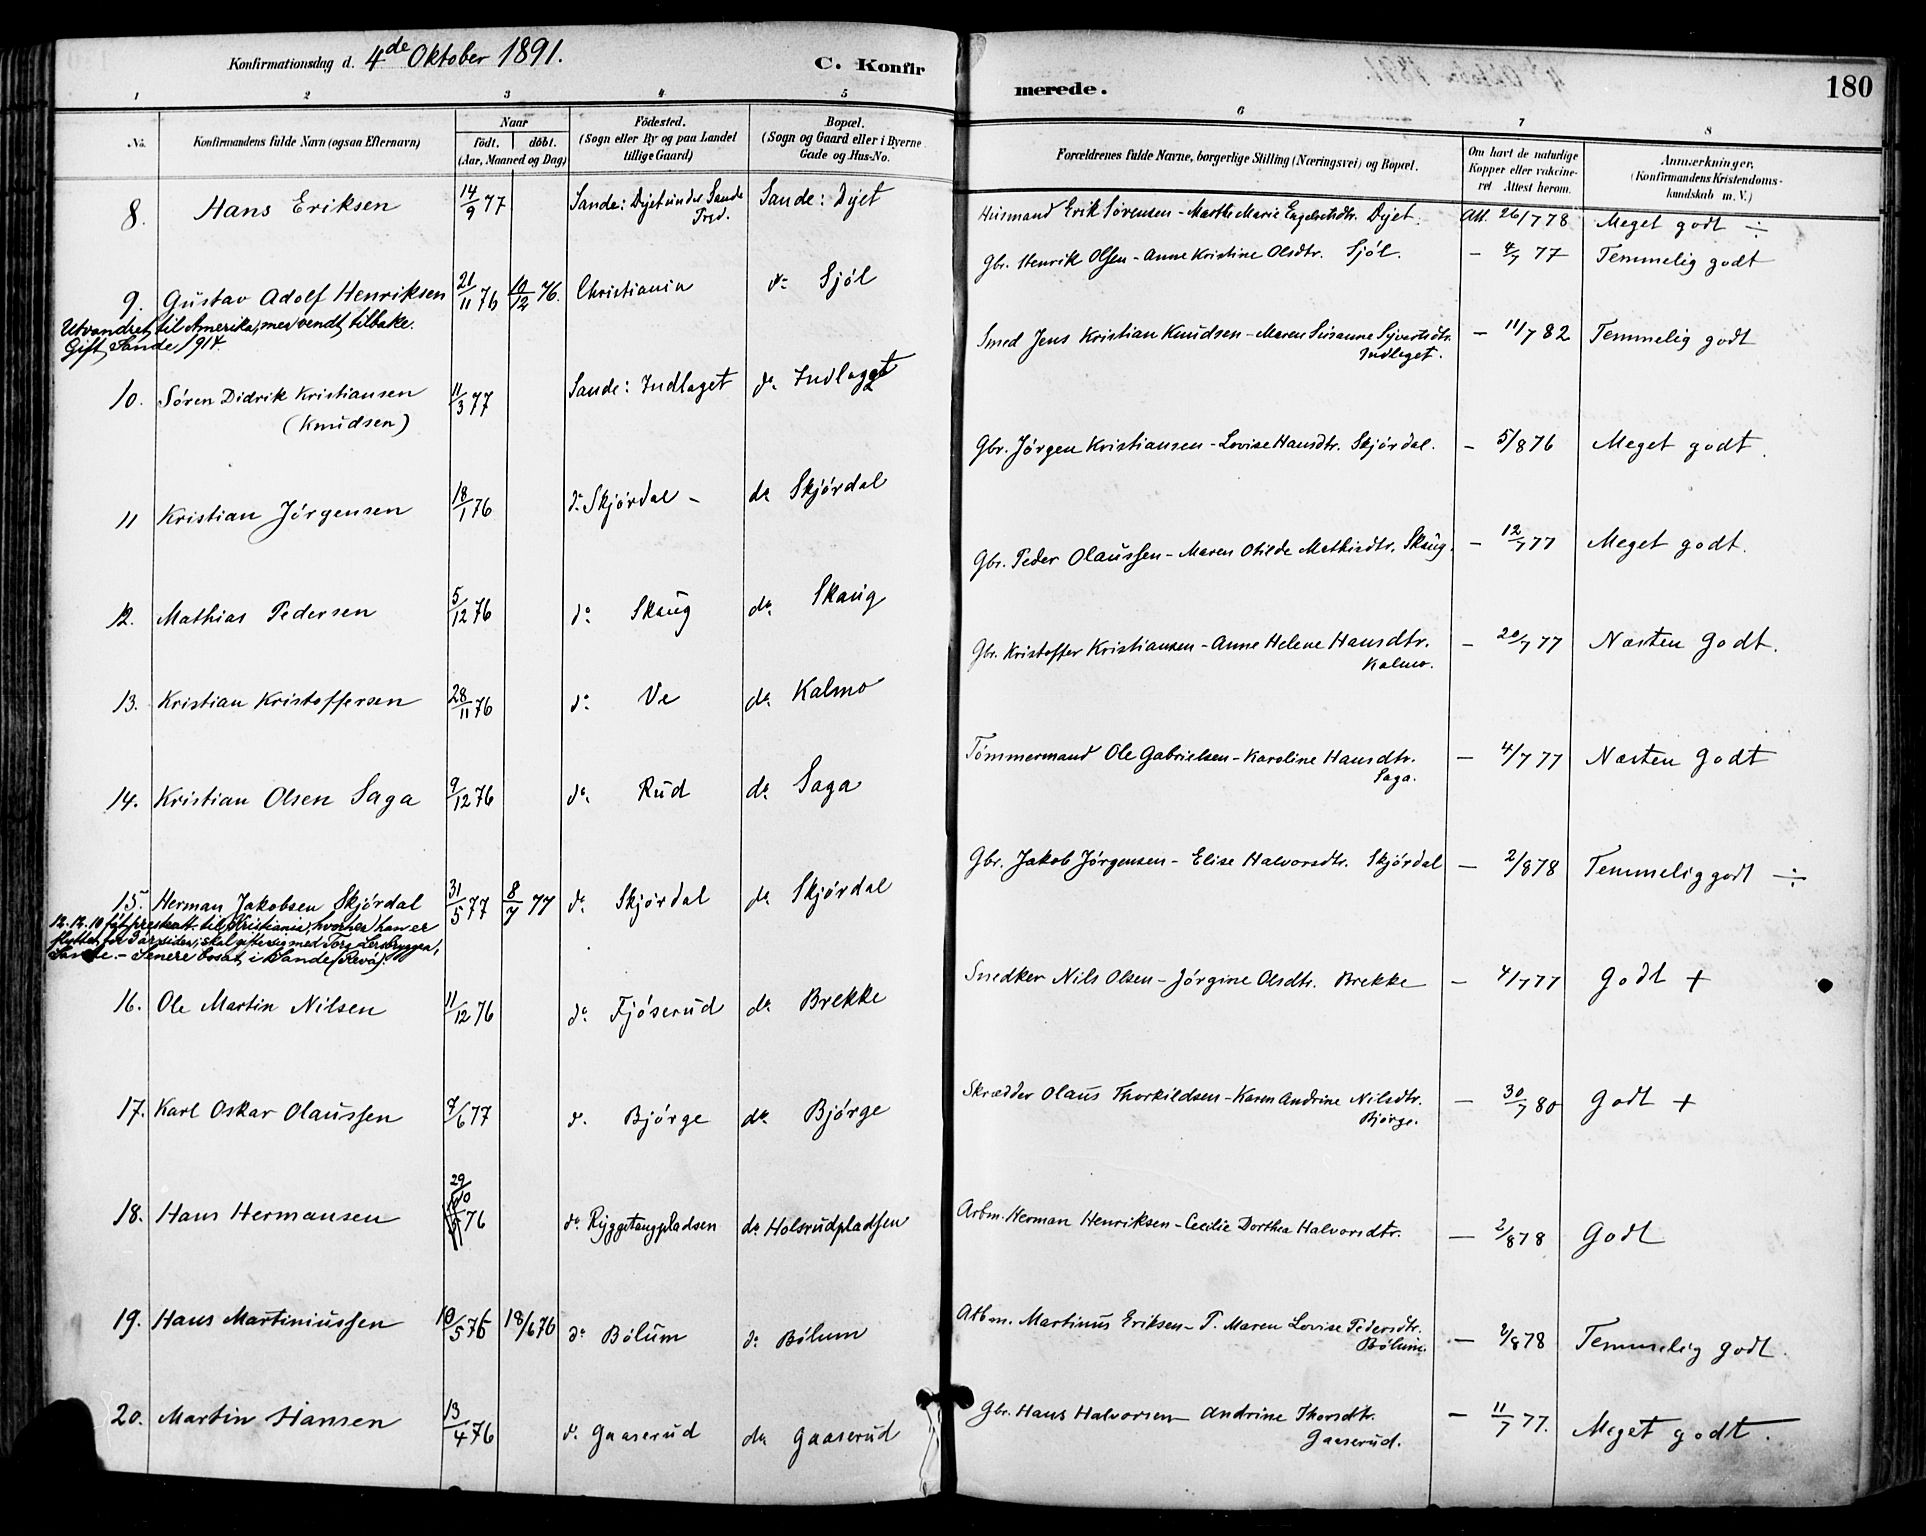 Konfirmationsdag d. 4de Oktober 1891. C. Konfir merede. 180
1 2 3 4 5 6 7 8
No. Konfirmandens fulde Navn (ogsaa Efternavn) Naar födt. döbt. (Aar, Maaned og Dag) Födested. (Sogn eller By og paa Landet tillige Gaard) Bopæl. (Sogn og Gaard eller i Byerne Gade og Hus-No. Forældrenes fulde Navne, borgerlige Stilling (Næringsvei) og Bopæl. Om havt de naturlige Kopper eller vakcineret. Attest herom. Anmærkninger. (Konfirmandens Kristendomskundskab m. V.)
8. Hans Eriksen 14/9 77 Sande: Dyet under Sande Prgd. Sande: Dyet Husmand Erik Sørensen - Marthe Marie Engebretsdtr. Dyet. Att. 26/7 78 Meget godt ÷
9. Gustav Adolf Henriksen 21/11 76 10/12 76. Christiania do Sjöl Gbr. Henrik Olsen - Anne Kristine Olsdtr. Sjöl. - 4/7 77 Temmelig godt
Utvandret til Amerika, men vendt tilbake.
Gift, Sande 1914.
10. Søren Didrik Kristiansen (Knudsen) 11/3 77 Sande: Indlaget do Indlaget Smed Jens Kristian Knudsen - Maren Susanne Syvertsdtr. Indlaget. - 11/7 82 Temmelig godt
11 Kristian Jörgensen 18/1 76 do Skjørdal - do Skjørdal Gbr. Jørgen Kristiansen - Lovise Hansdtr. Skjørdal. - 5/8 76 Meget godt.
12. Mathias Pedersen 5/12 76 do Skaug do Skaug Gbr. Peder Olaussen - Maren Otilde Mathisdtr. Skaug. - 12/7 77 Meget godt.
13. Kristian Kristoffersen 28/11 76 do Ve do Kalmo Gbr. Kristoffer Kristiansen - Anne Helene Hansdtr. Kalmo. - 20/7 77 Næsten Godt.
14. Kristian Olsen Saga 9/12 76 do Rud do Saga Tömmermand Ole Gabrielsen - Karoline Hansdtr. Saga. - 4/7 77 Næsten Godt
15. Herman Jakobsen Skjørdal 31/5 77 8/7 77 do Skjørdal do Skjørdal Gbr. Jakob Jørgensen - Elise Halvorsdtr. Skjørdal - 2/8 78 Temmelig godt ÷
12.12.10 fåt presteatt. til Kristiania, hvorhen han er
flyttet for 2 år siden; skal gifte sig med Torg. Lersbryggen,
Sande. - Senere bosat i Sande (Revå).
16. Ole Martin Nilsen 11/12 76 do Fjöserud do Brekke Snedker Nils Olsen - Jörgine Olsdtr. Brekke - 4/7 77 Godt +
17. Karl Oskar Olaussen 4/6 77 do Bjórge do Bjórge Skrædder Olaus Thorkildsen - Karen Andrine Nilsdtr. Bjórge. - 30/7 80 Godt +
18. Hans Hermansen 29/10 76 do Ryggetangpladsen do Holsrudpladsen Arbm. Herman Henriksen - Cecilie Dorthea Halvorsdtr. - 2/8 78 Godt
19. Hans Martiniussen 10/5 76 18/6 76 do Bölum do Bölum Arbm. Martinus Eriksen - P. Maren Lovise Pedersdtr. Bölum. - 2/8 78 Temmelig godt.
20. Martin Hansen 13/4 76 do Gaaserud do Gaaserud Gbr. Hans Halvorsen - Andrine Thorsdtr. Gaaserud. - 11/7 77. Meget godt.